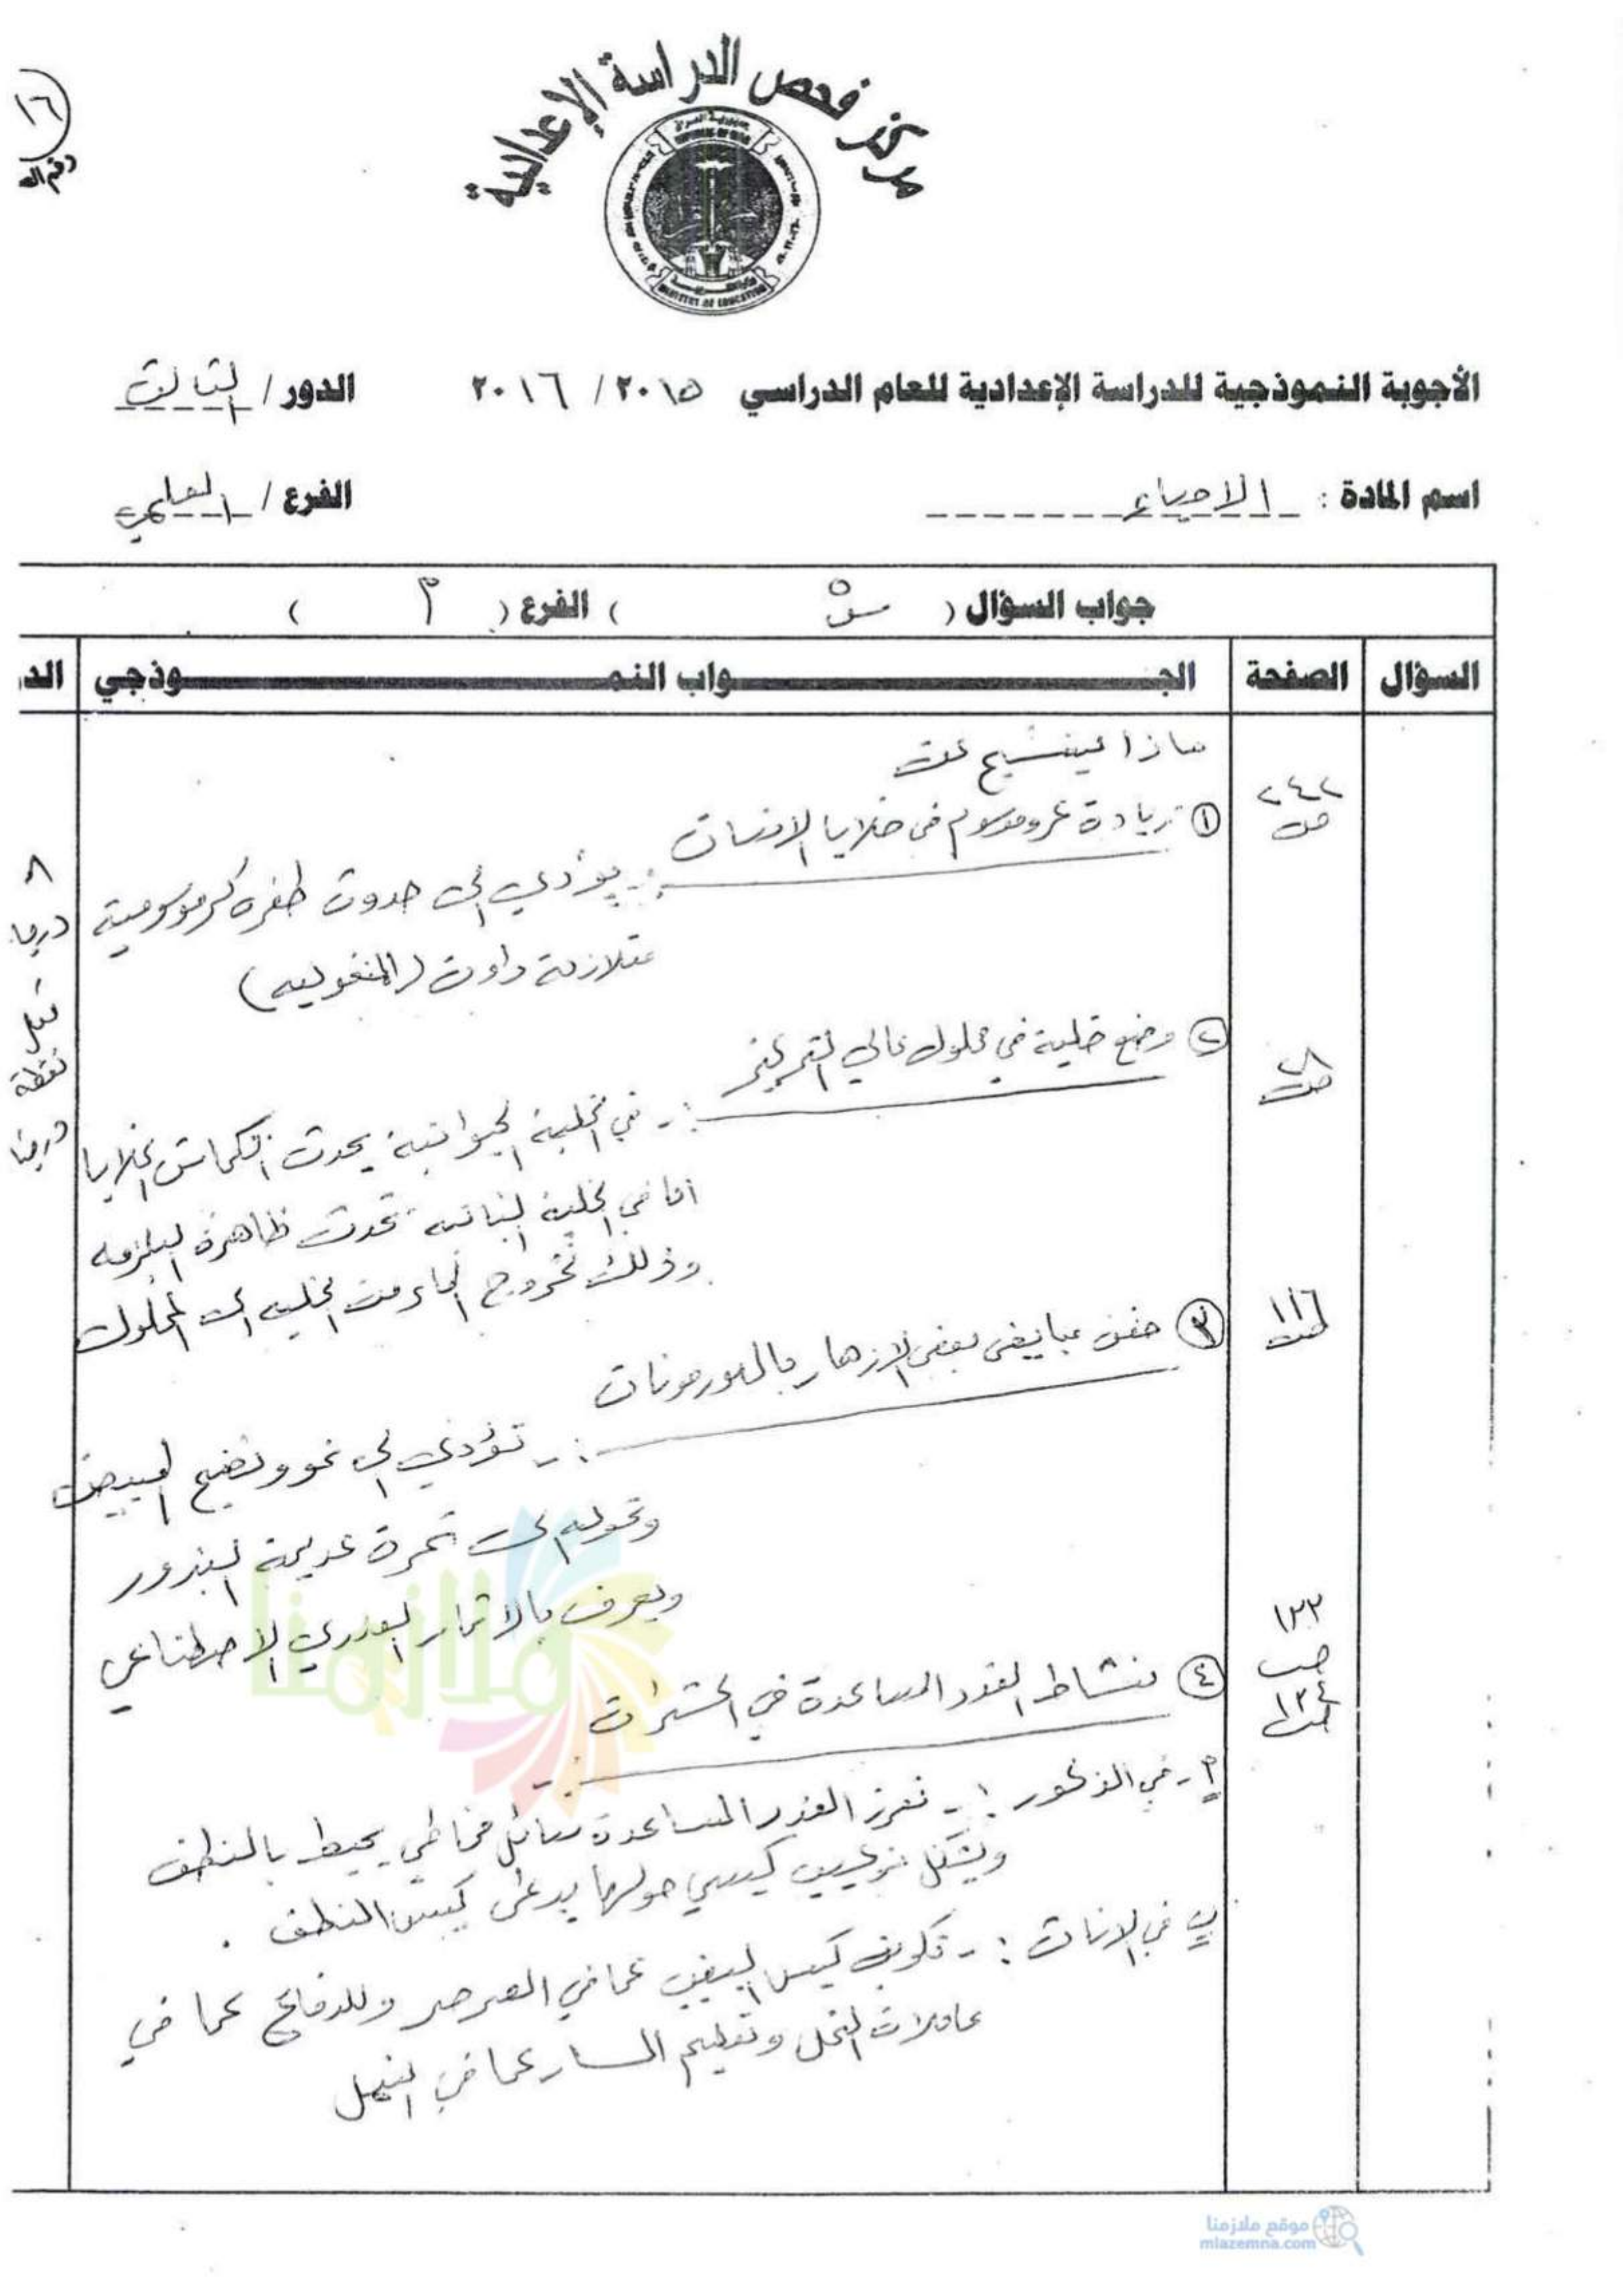 ١٦
رقم الـ
مركز فحص الدراسة الإعدادية
جمهورية العراق
REPUBLIC OF IRAQ
MINISTRY OF EDUCATION
الأجوبة النموذجية للدراسة الإعدادية للعام الدراسي ٢٠١٥ / ٢٠١٦ الدور / الثالث
اسم المادة : الاحياء الفرع / العلمي
جواب السؤال ( س٥ ) الفرع ( أ )
السؤال الصفحة الجـــواب النمـــوذجي الد
ماذا ينتج عن
ص ٢٤٢
① زيادة كروموسوم في خلايا الانسان :- يؤدي الى حدوث طفرة كروموسومية
٨ درجا
متلازمة داون (المنغولية)
لكل نقطة درجتا
ص ٢٨
② وضع خلية في محلول عالي التركيز :- في الخلية الحيوانية يحدث انكماش الخلايا
اما في الخلية النباتية تحدث ظاهرة البلزمة
وذلك لخروج الماء من الخلية الى المحلول
ص ١١٦
③ حقن مبايض بعض الازهار بالهورمونات :- تؤدي الى نمو ونضج المبيض
وتحوله الى ثمرة عديمة البذور
ويعرف بالاثمار العذري الاصطناعي
ص ١٣٣
ص ١٣٤
④ نشاط الغدد المساعدة في الحشرات :-
أ- في الذكور :- تفرز الغدد المساعدة سائل مخاطي يحيط بالنطف
ويشكل تركيب كيسي حولها يدعى كيس النطف .
ب في الاناث :- تكوين كيس البيض كما في الصرصر وللدفاع كما في
عاملات النحل وتعليم المسار كما في النمل
ملازمنا
موقع ملازمنا
mlazemna.com